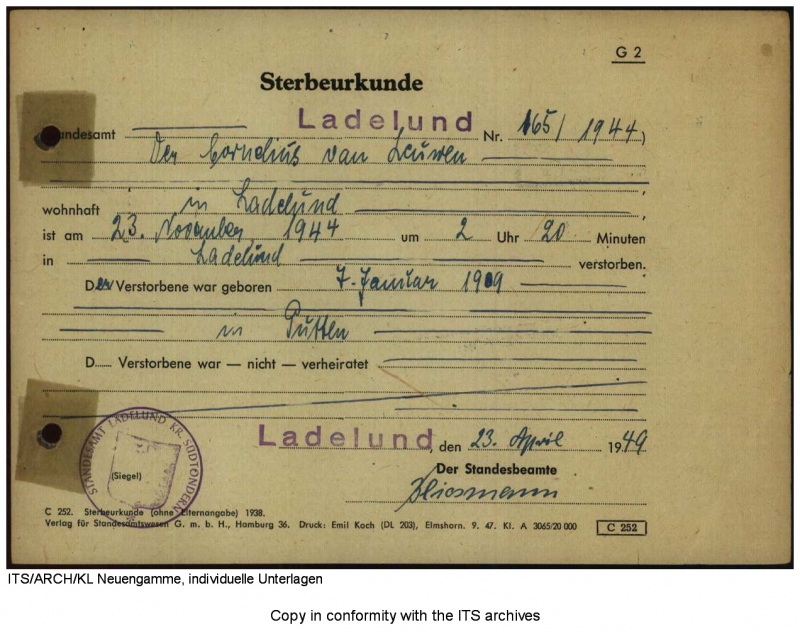 G 2
Sterbeurkunde
Standesamt Ladelund Nr. 165/1944
Der Cornelius van Leuwen
wohnhaft in Ladelund
ist am 23. November 1944 um 2 Uhr 20 Minuten
in Ladelund verstorben.
Der Verstorbene war geboren 7. Januar 1909
in Putten
D..... Verstorbene war — nicht — verheiratet
Ladelund, den 23. April 1949
Der Standesbeamte
STANDESAMT LADELUND KR. SÜDTONDERN
(Siegel)
C 252. Sterbeurkunde (ohne Elternangabe) 1938.
Verlag für Standesamtswesen G. m. b. H., Hamburg 36. Druck: Emil Koch (DL 203), Elmshorn. 9. 47. Kl. A 3065/20 000
C 252
ITS/ARCH/KL Neuengamme, individuelle Unterlagen
Copy in conformity with the ITS archives